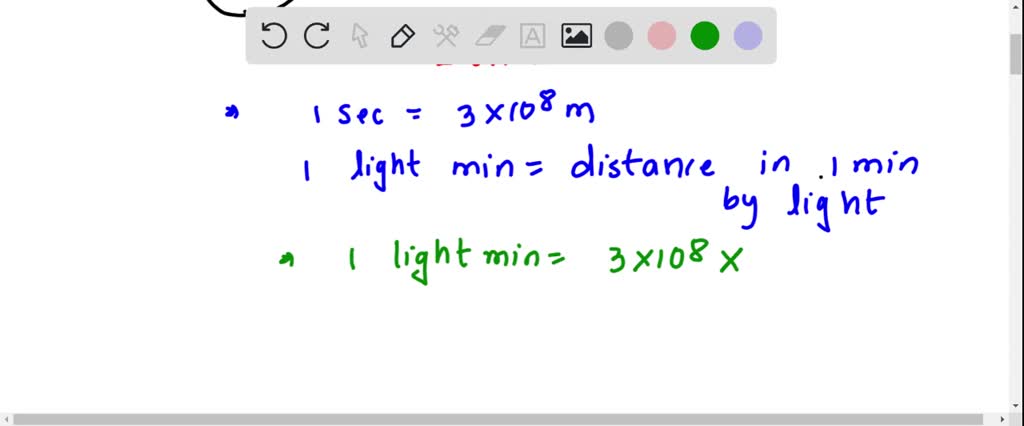 ⇒ 1 sec = 3×10⁸ m
1 light min = distance in .1 min
by light
⇒ 1 light min = 3×10⁸ ×